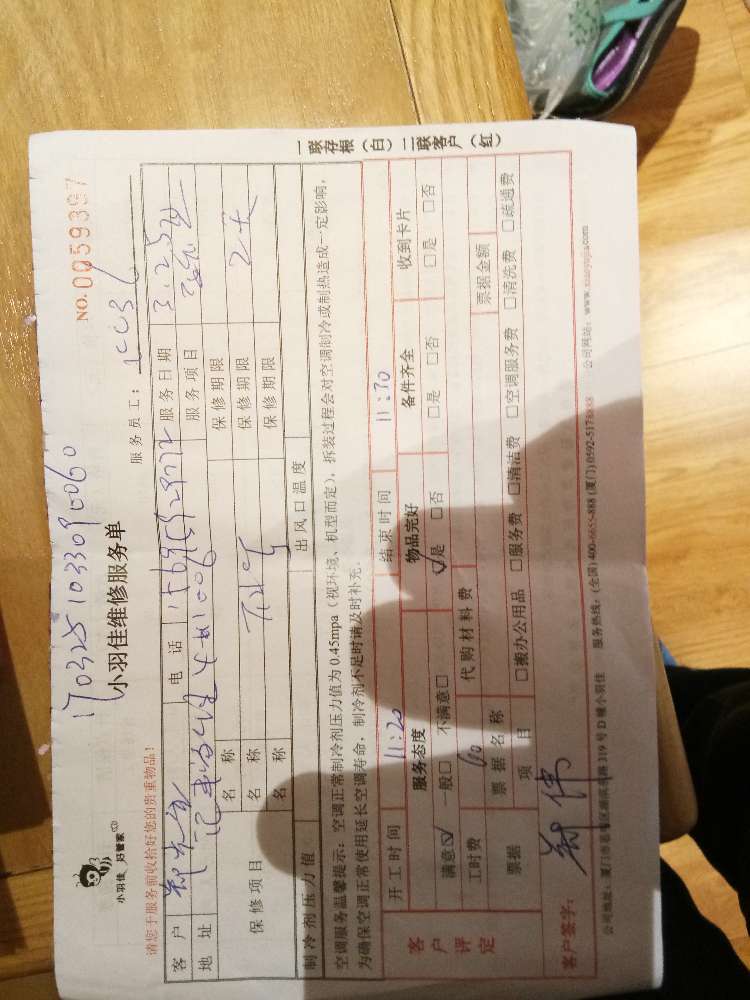 小羽佳 好管家
NO. 0059397
170325103309 0060
小羽佳维修服务单
服务员工：
请您于服务前收拾好您的贵重物品！
客户 郑先生 电话 服务日期 3.25
地址 服务项目
保修项目
名称 保修期限
名称 下水 保修期限 2天
名称 保修期限
制冷剂压力值 出风口温度
空调服务温馨提示：空调正常制冷剂压力值为0.45mpa（视环境、机型而定），拆装过程会对空调制冷或制热造成一定影响，
为确保空调正常使用延长空调寿命，制冷剂不足时请及时补充。
客户评定
开工时间 11:20 结束时间 11:30
服务态度 物品完好 备件齐全 收到卡片
满意☑ 一般□ 不满意□ ☑是 □否 □是 □否 □是 □否
工时费 60 代购材料费
票据 票据名称 票据金额
项目 □搬办公用品 □服务费 □清洁费 □空调服务费 □清洗费 □疏通费
客户签字： 郑伟
公司地址：厦门市思明区湖滨南路319号D幢小羽佳 服务热线：(全国)400-6655-888 (厦门)0592-5178888 公司网站：www.xiaoyujia.com
一联存根（白）二联客户（红）